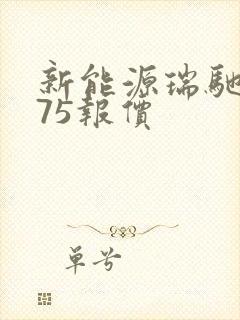 新能源瑞馳
75報價
單号